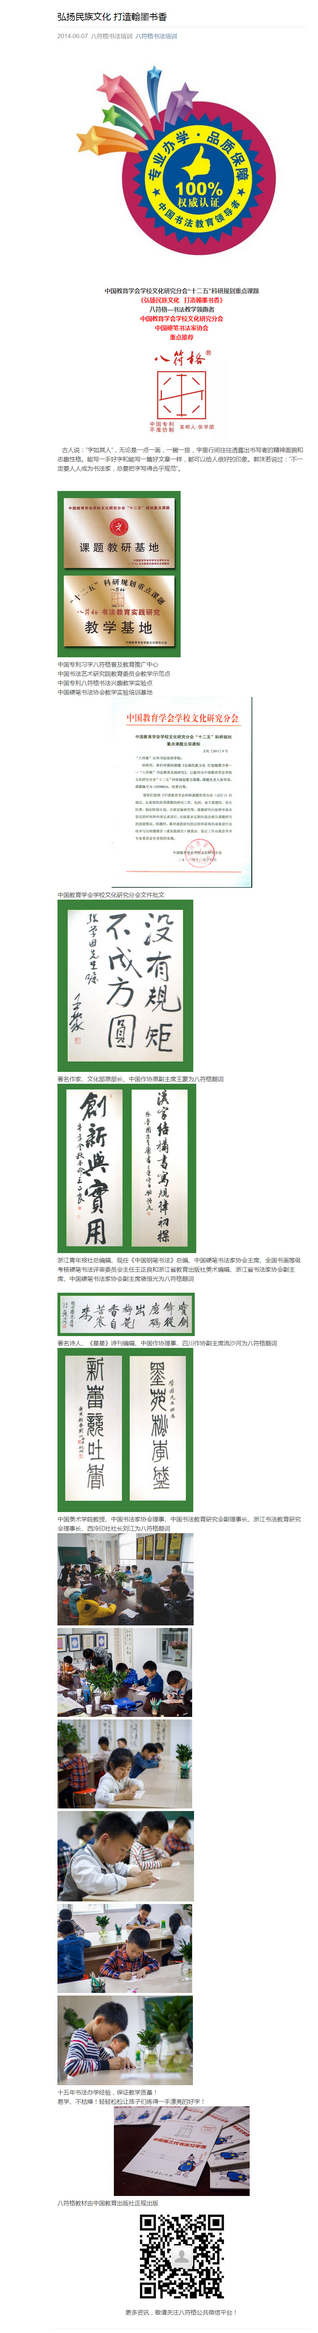 弘扬民族文化 打造翰墨书香
2014-06-07 八符格书法培训 八符格书法培训
专业办学·品质保障
100%
权威认证
中国书法教育领导者
中国教育学会学校文化研究分会“十二五”科研规划重点课题
《弘扬民族文化 打造翰墨书香》
八符格—书法教学领跑者
中国教育学会学校文化研究分会
中国硬笔书法家协会
重点推荐
八符格®
中国专利
不准仿制
发明人:张学团
古人说：“字如其人”，无论是一点一画，一撇一捺，字里行间往往透露出书写者的精神面貌和
志趣性格。能写一手好字和能写一篇好文章一样，都可以给人很好的印象。郭沫若说过：“不一
定要人人成为书法家，总要把字写得合乎规范”。
课题教研基地
“十二五”科研规划重点课题
八符格 书法教育实践研究
教学基地
中国专利习字八符格普及教育推广中心
中国书法艺术研究院教育委员会教学示范点
中国专利八符格书法兴趣教学实验点
中国硬笔书法协会教学实验培训基地
中国教育学会学校文化研究分会
中国教育学会学校文化研究分会“十二五”科研规划
重点课题立项通知
中国教育学会学校文化研究分会文件批文
没有规矩
不成方圆
著名作家、文化部原部长、中国作协原副主席王蒙为八符格题词
創新與實用
漢字结構書寫規律初探
浙江青年报社总编辑、现任《中国钢笔书法》总编、中国硬笔书法家协会主席、全国书画等级
考核硬笔书法评审委员会主任王正良和浙江省教育出版社美术编辑、浙江省书法家协会副主
席、中国硬笔书法家协会副主席骆恒光为八符格题词
著名诗人、《星星》诗刊编辑、中国作协理事、四川作协副主席流沙河为八符格题词
新蕾競吐香
中国美术学院教授、中国书法家协会理事、中国书法教育研究会副理事长、浙江书法教育研究
会理事长、西泠印社社长刘江为八符格题词
十五年书法办学经验，保证教学质量！
易学、不枯燥！轻轻松松让孩子们练得一手漂亮的好字！
八符格教材由中国教育出版社正规出版
更多资讯，敬请关注八符格公共微信平台！